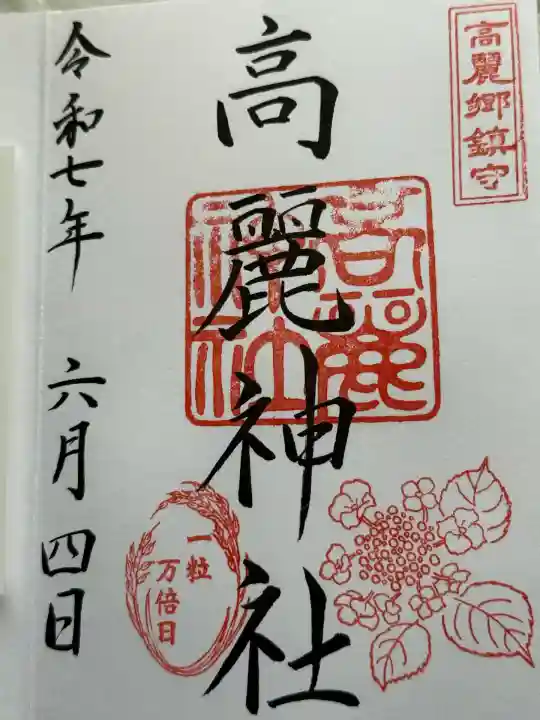 高麗郷鎮守
高麗神社
高麗
神社
一粒
万倍日
令和七年 六月四日